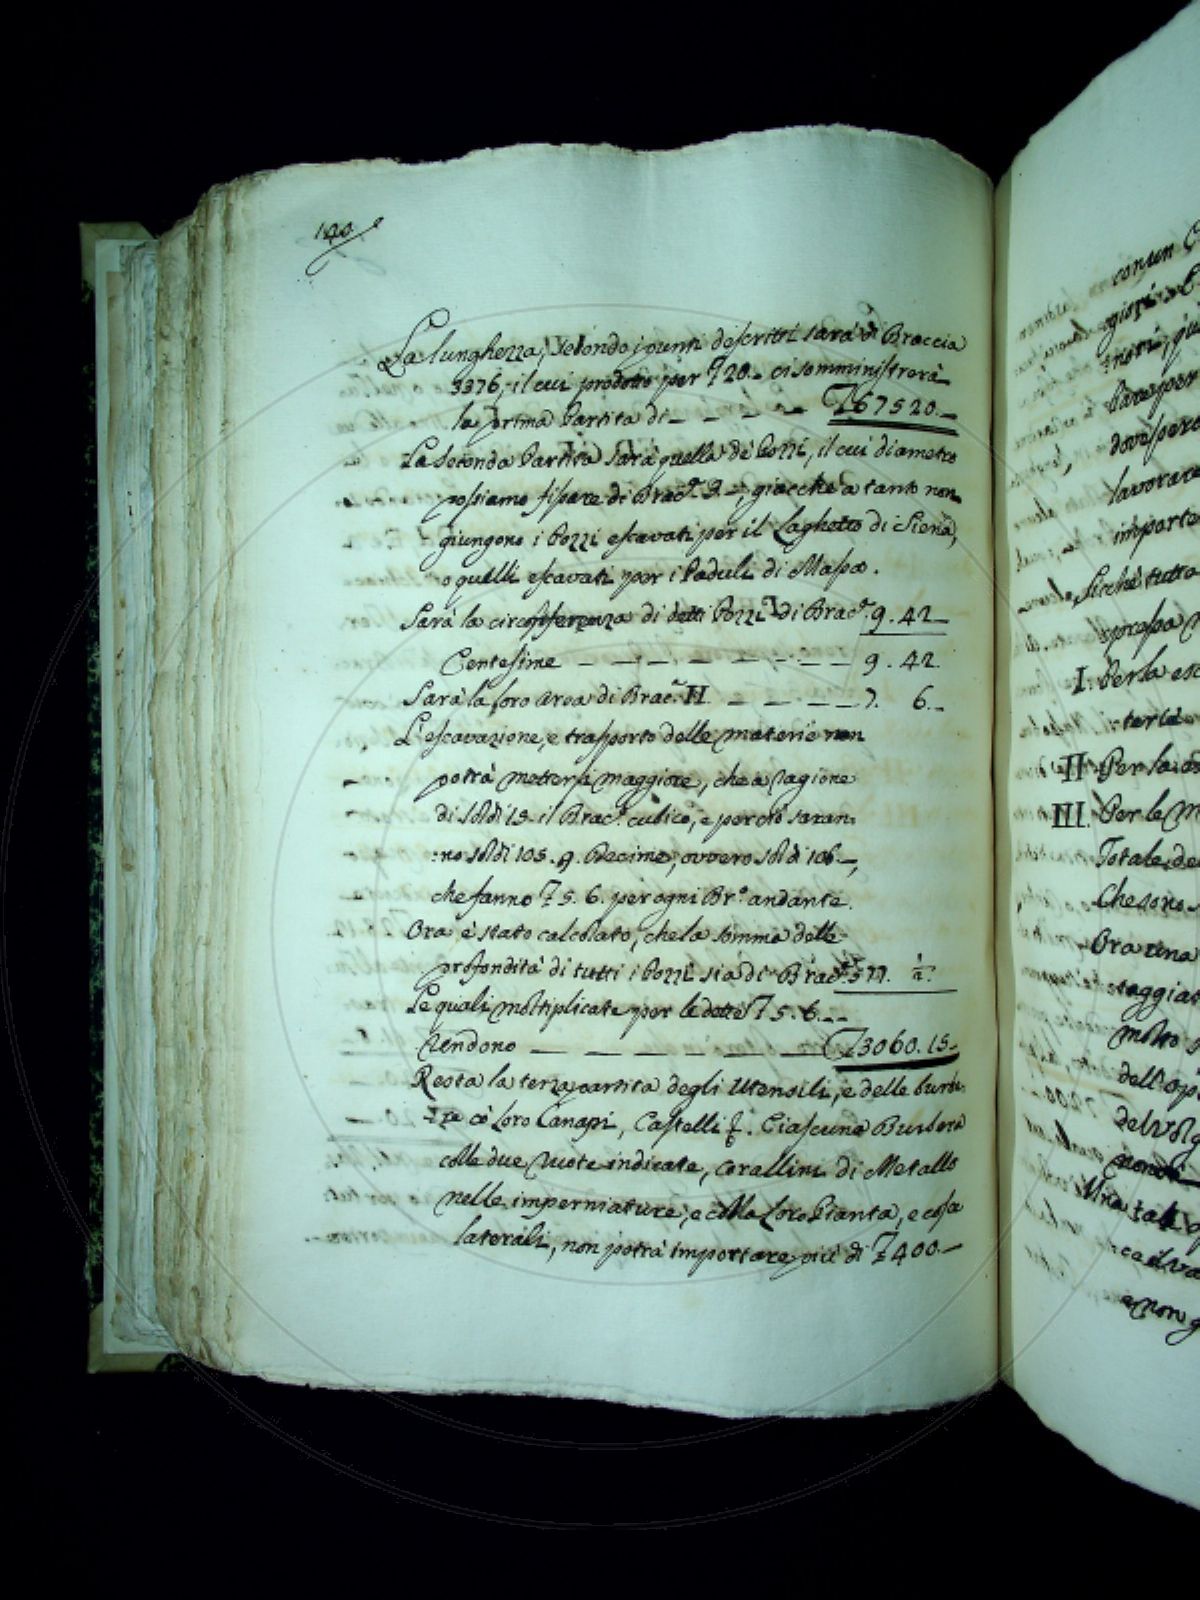 140
La lunghezza, secondo i punti descritti sarà di Braccia
3376, il cui prodotto per 20.- ci somministrerà
la prima Partita di - - - - 67520.-
La seconda Partita sarà quella de' Pozzi, il cui diametro
possiamo fissare di Brac.ᵃ 3-, giacchè a tanto non
giungono i Pozzi escavati per il Laghetto di Siena,
o quelli escavati per i Paduli di Massa.
Sarà la circonferenza di detti Pozzi di Brac.ᵃ 9.42-
Centesime - - - - - - - - 9.42.
Sarà la loro area di Brac.ᵃ - - - - 7. 6.-
L'escavazione, e trasporto delle materie non
potrà mettersi maggiore, che a ragione
di soldi 15 il Brac.º cubico, e perciò saran:
:no soldi 105.9. Decime, ovvero soldi 106-,
che fanno 5.6. per ogni Br.º andante.
Ora è stato calcolato, che la somma delle
profondità di tutti i Pozzi sia di Brac.ᵃ 577.
Le quali moltiplicate per le dette 5.6.--
rendono - - - - - - 3060.15-
Resta la terza partita degli Utensili, e delle burbe:
:re co' loro Canapi, Castelli. Ciascuna Burbera
colle due Ruote indicate, corallini di Metallo
nelle imperniature, e colla loro Pianta, e cosa
laterali, non potrà importare più di 400.-
con un
giori
lavorare
importe
Sicchè tutta
spesa
I. Per la esc
terie
II Per la
III. Per le M
Totale de
Che sono
Ora una
molto
dell'op
Una tal
e non g